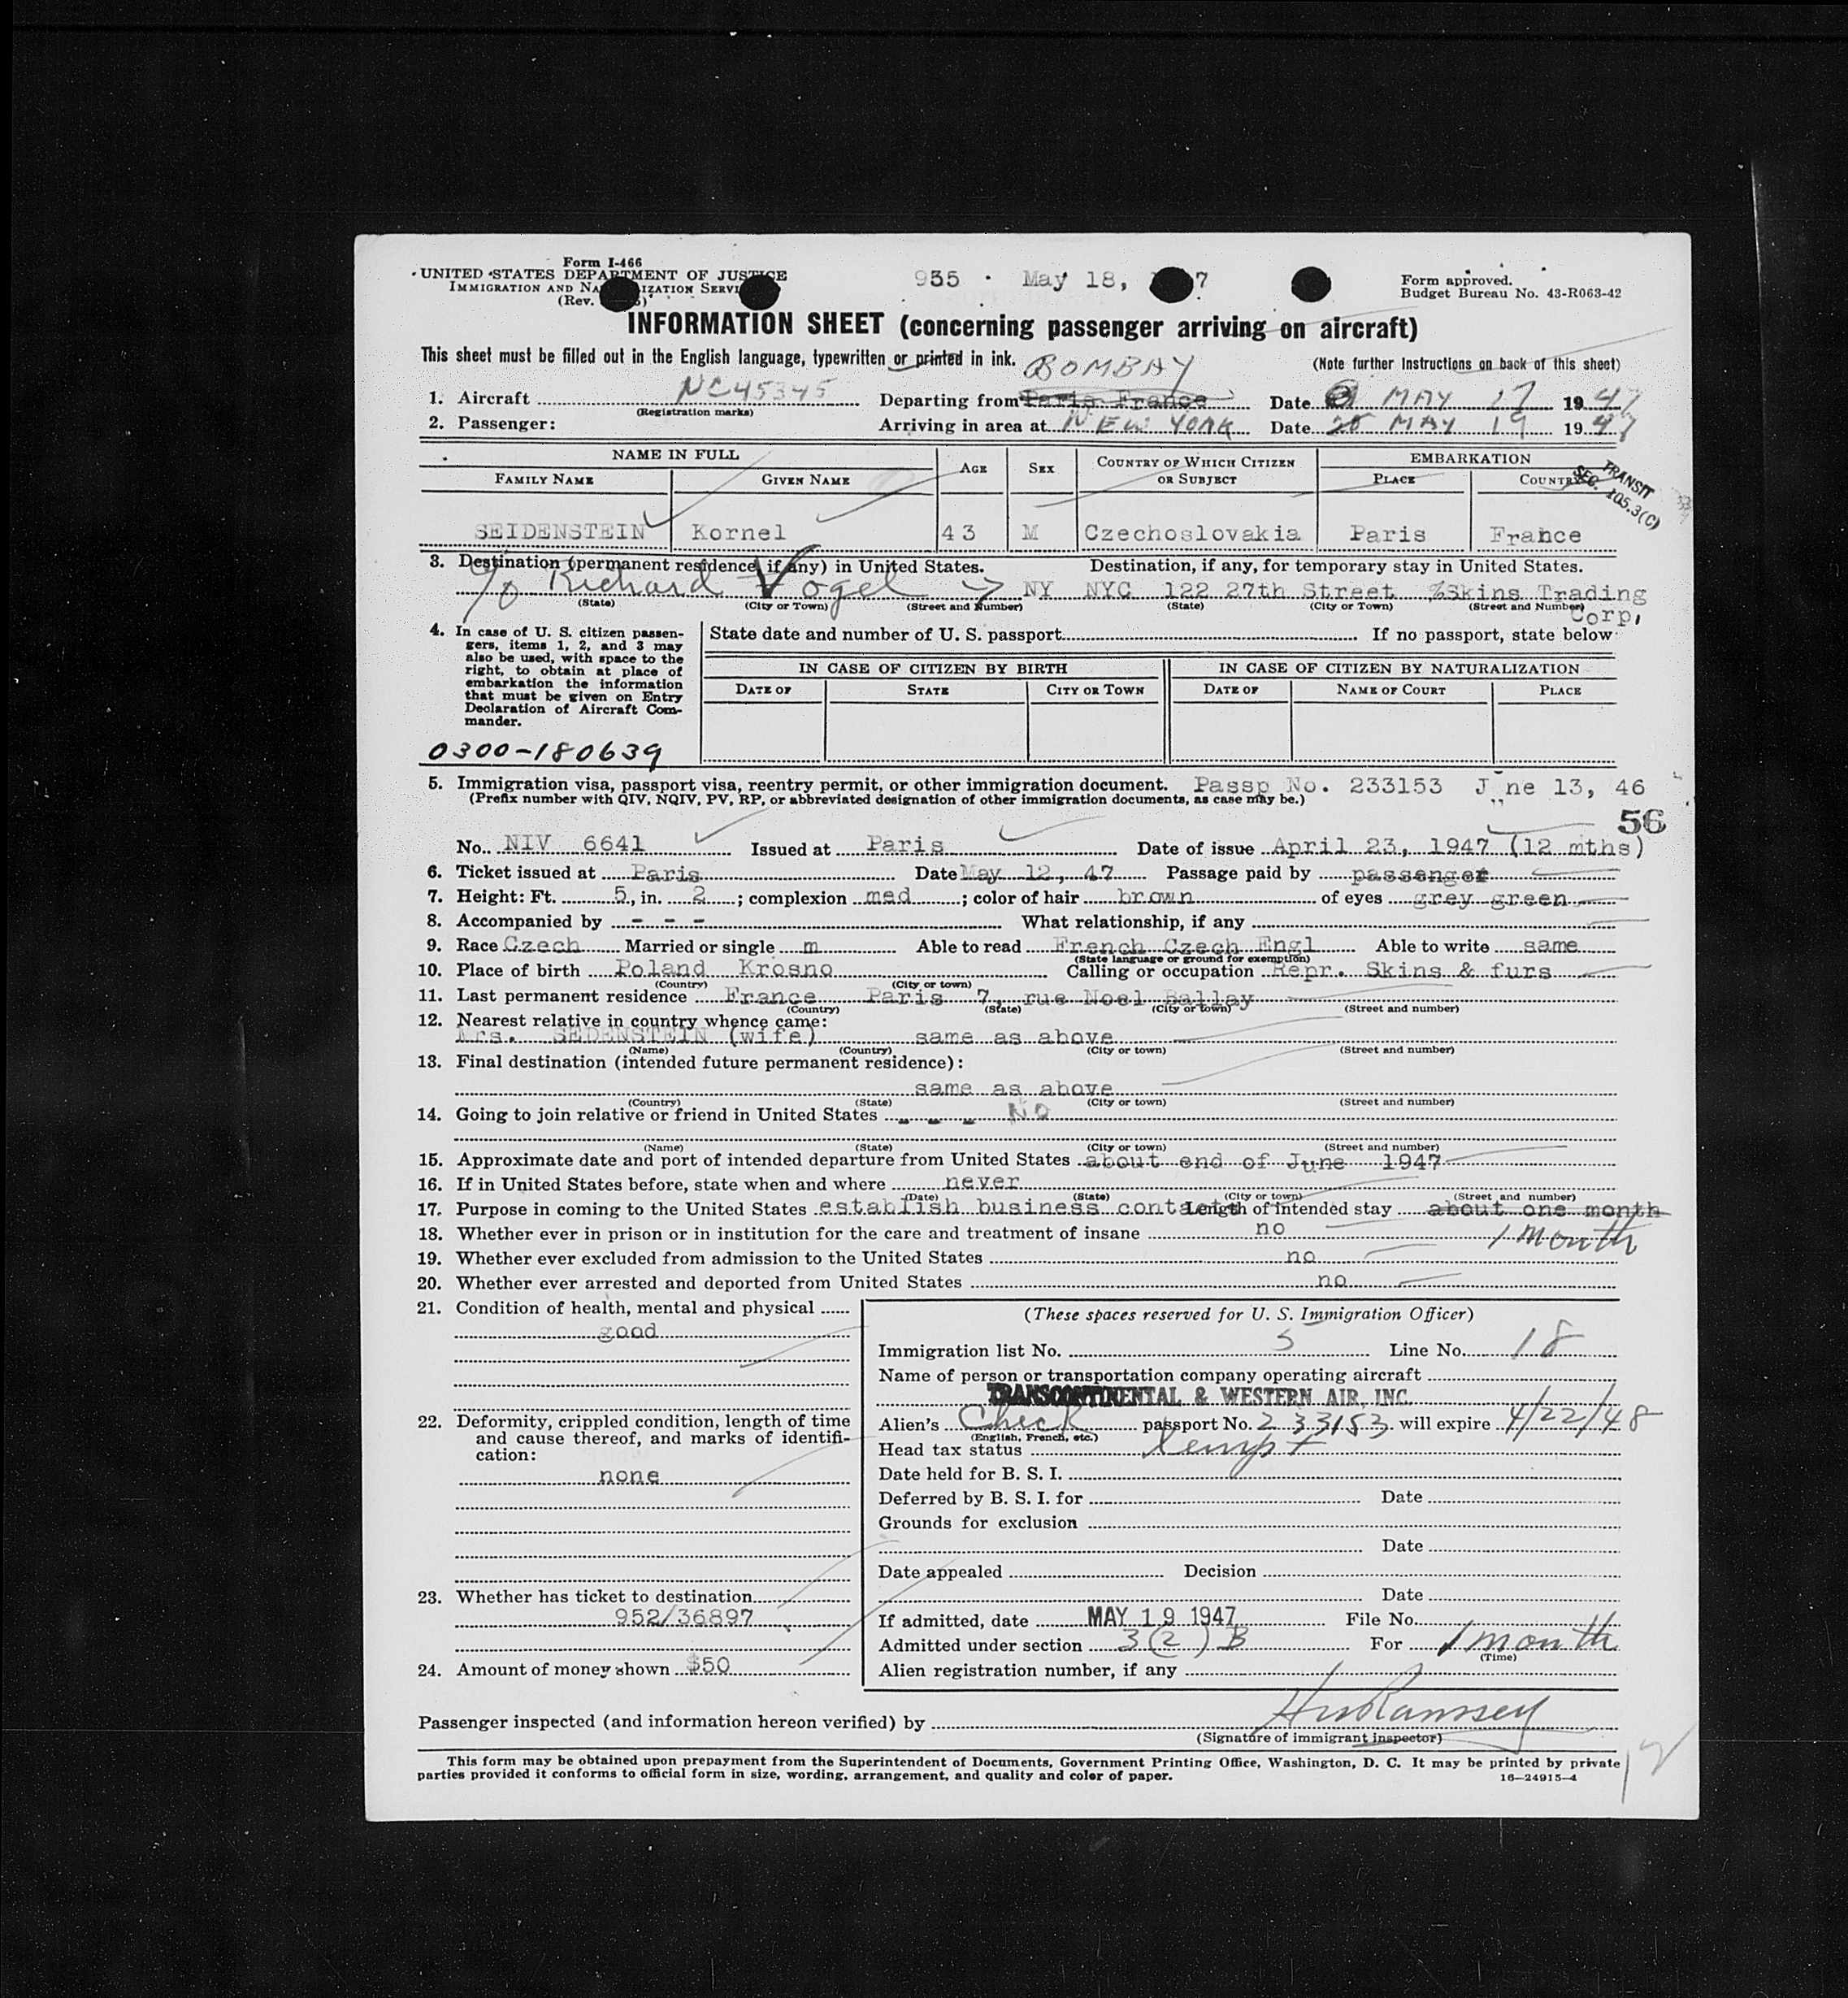 Form I-466
UNITED STATES DEPARTMENT OF JUSTICE
IMMIGRATION AND NATURALIZATION SERVICE
(Rev.
935 · May 18, 7
Form approved.
Budget Bureau No. 43-R063-42
INFORMATION SHEET (concerning passenger arriving on aircraft)
This sheet must be filled out in the English language, typewritten or printed in ink.
(Note further Instructions on back of this sheet)
BOMBAY
1. Aircraft NC45345 Departing from Paris France Date MAY 17 1947
(Registration marks)
2. Passenger: Arriving in area at NEW YORK Date MAY 19 1947
NAME IN FULL AGE SEX COUNTRY OF WHICH CITIZEN OR SUBJECT EMBARKATION
FAMILY NAME GIVEN NAME PLACE COUNTRY
TRANSIT
SEC. 105.3(C)
SEIDENSTEIN Kornel 43 M Czechoslovakia Paris France
3. Destination (permanent residence, if any) in United States. Destination, if any, for temporary stay in United States.
c/o Richard Vogel → NY NYC 122 27th Street %Skins Trading
(State) (City or Town) (Street and Number) (State) (City or Town) (Street and Number)
Corp,
4. In case of U. S. citizen passen-
gers, items 1, 2, and 3 may
also be used, with space to the
right, to obtain at place of
embarkation the information
that must be given on Entry
Declaration of Aircraft Com-
mander.
State date and number of U. S. passport If no passport, state below
IN CASE OF CITIZEN BY BIRTH IN CASE OF CITIZEN BY NATURALIZATION
DATE OF STATE CITY OR TOWN DATE OF NAME OF COURT PLACE
0300-180639
5. Immigration visa, passport visa, reentry permit, or other immigration document. Passp No. 233153 June 13, 46
(Prefix number with QIV, NQIV, PV, RP, or abbreviated designation of other immigration documents, as case may be.)
56
No. NIV 6641 Issued at Paris Date of issue April 23, 1947 (12 mths)
6. Ticket issued at Paris Date May 12, 47 Passage paid by passenger
7. Height: Ft. 5, in. 2; complexion med; color of hair brown of eyes grey green
8. Accompanied by - - - What relationship, if any
9. Race Czech Married or single m Able to read French Czech Engl Able to write same
(State language or ground for exemption)
10. Place of birth Poland Krosno Calling or occupation Repr. Skins & furs
(Country) (City or town)
11. Last permanent residence France Paris 7, rue Noel Ballay
(Country) (State) (City or town) (Street and number)
12. Nearest relative in country whence came:
Mrs. SEDENSTEIN (wife) same as above
(Name) (Country) (City or town) (Street and number)
13. Final destination (intended future permanent residence):
same as above
(Country) (State) (City or town) (Street and number)
14. Going to join relative or friend in United States - - - NO
(Name) (State) (City or town) (Street and number)
15. Approximate date and port of intended departure from United States about end of June 1947
16. If in United States before, state when and where never
(Date) (State) (City or town) (Street and number)
17. Purpose in coming to the United States establish business contacts Length of intended stay about one month
18. Whether ever in prison or in institution for the care and treatment of insane no 1 month
19. Whether ever excluded from admission to the United States no
20. Whether ever arrested and deported from United States no
21. Condition of health, mental and physical
good
22. Deformity, crippled condition, length of time
and cause thereof, and marks of identifi-
cation:
none
23. Whether has ticket to destination
952/36897
24. Amount of money shown $50
(These spaces reserved for U. S. Immigration Officer)
Immigration list No. 5 Line No. 18
Name of person or transportation company operating aircraft
TRANSCONTINENTAL & WESTERN AIR, INC.
Alien's Check passport No. 233153 will expire 4/22/48
(English, French, etc.)
Head tax status Exempt
Date held for B. S. I.
Deferred by B. S. I. for Date
Grounds for exclusion
Date
Date appealed Decision
Date
If admitted, date MAY 19 1947 File No.
Admitted under section 3(2)B For 1 month
(Time)
Alien registration number, if any
Passenger inspected (and information hereon verified) by
(Signature of immigrant inspector)
This form may be obtained upon prepayment from the Superintendent of Documents, Government Printing Office, Washington, D. C. It may be printed by private
parties provided it conforms to official form in size, wording, arrangement, and quality and color of paper.
16—24915-4